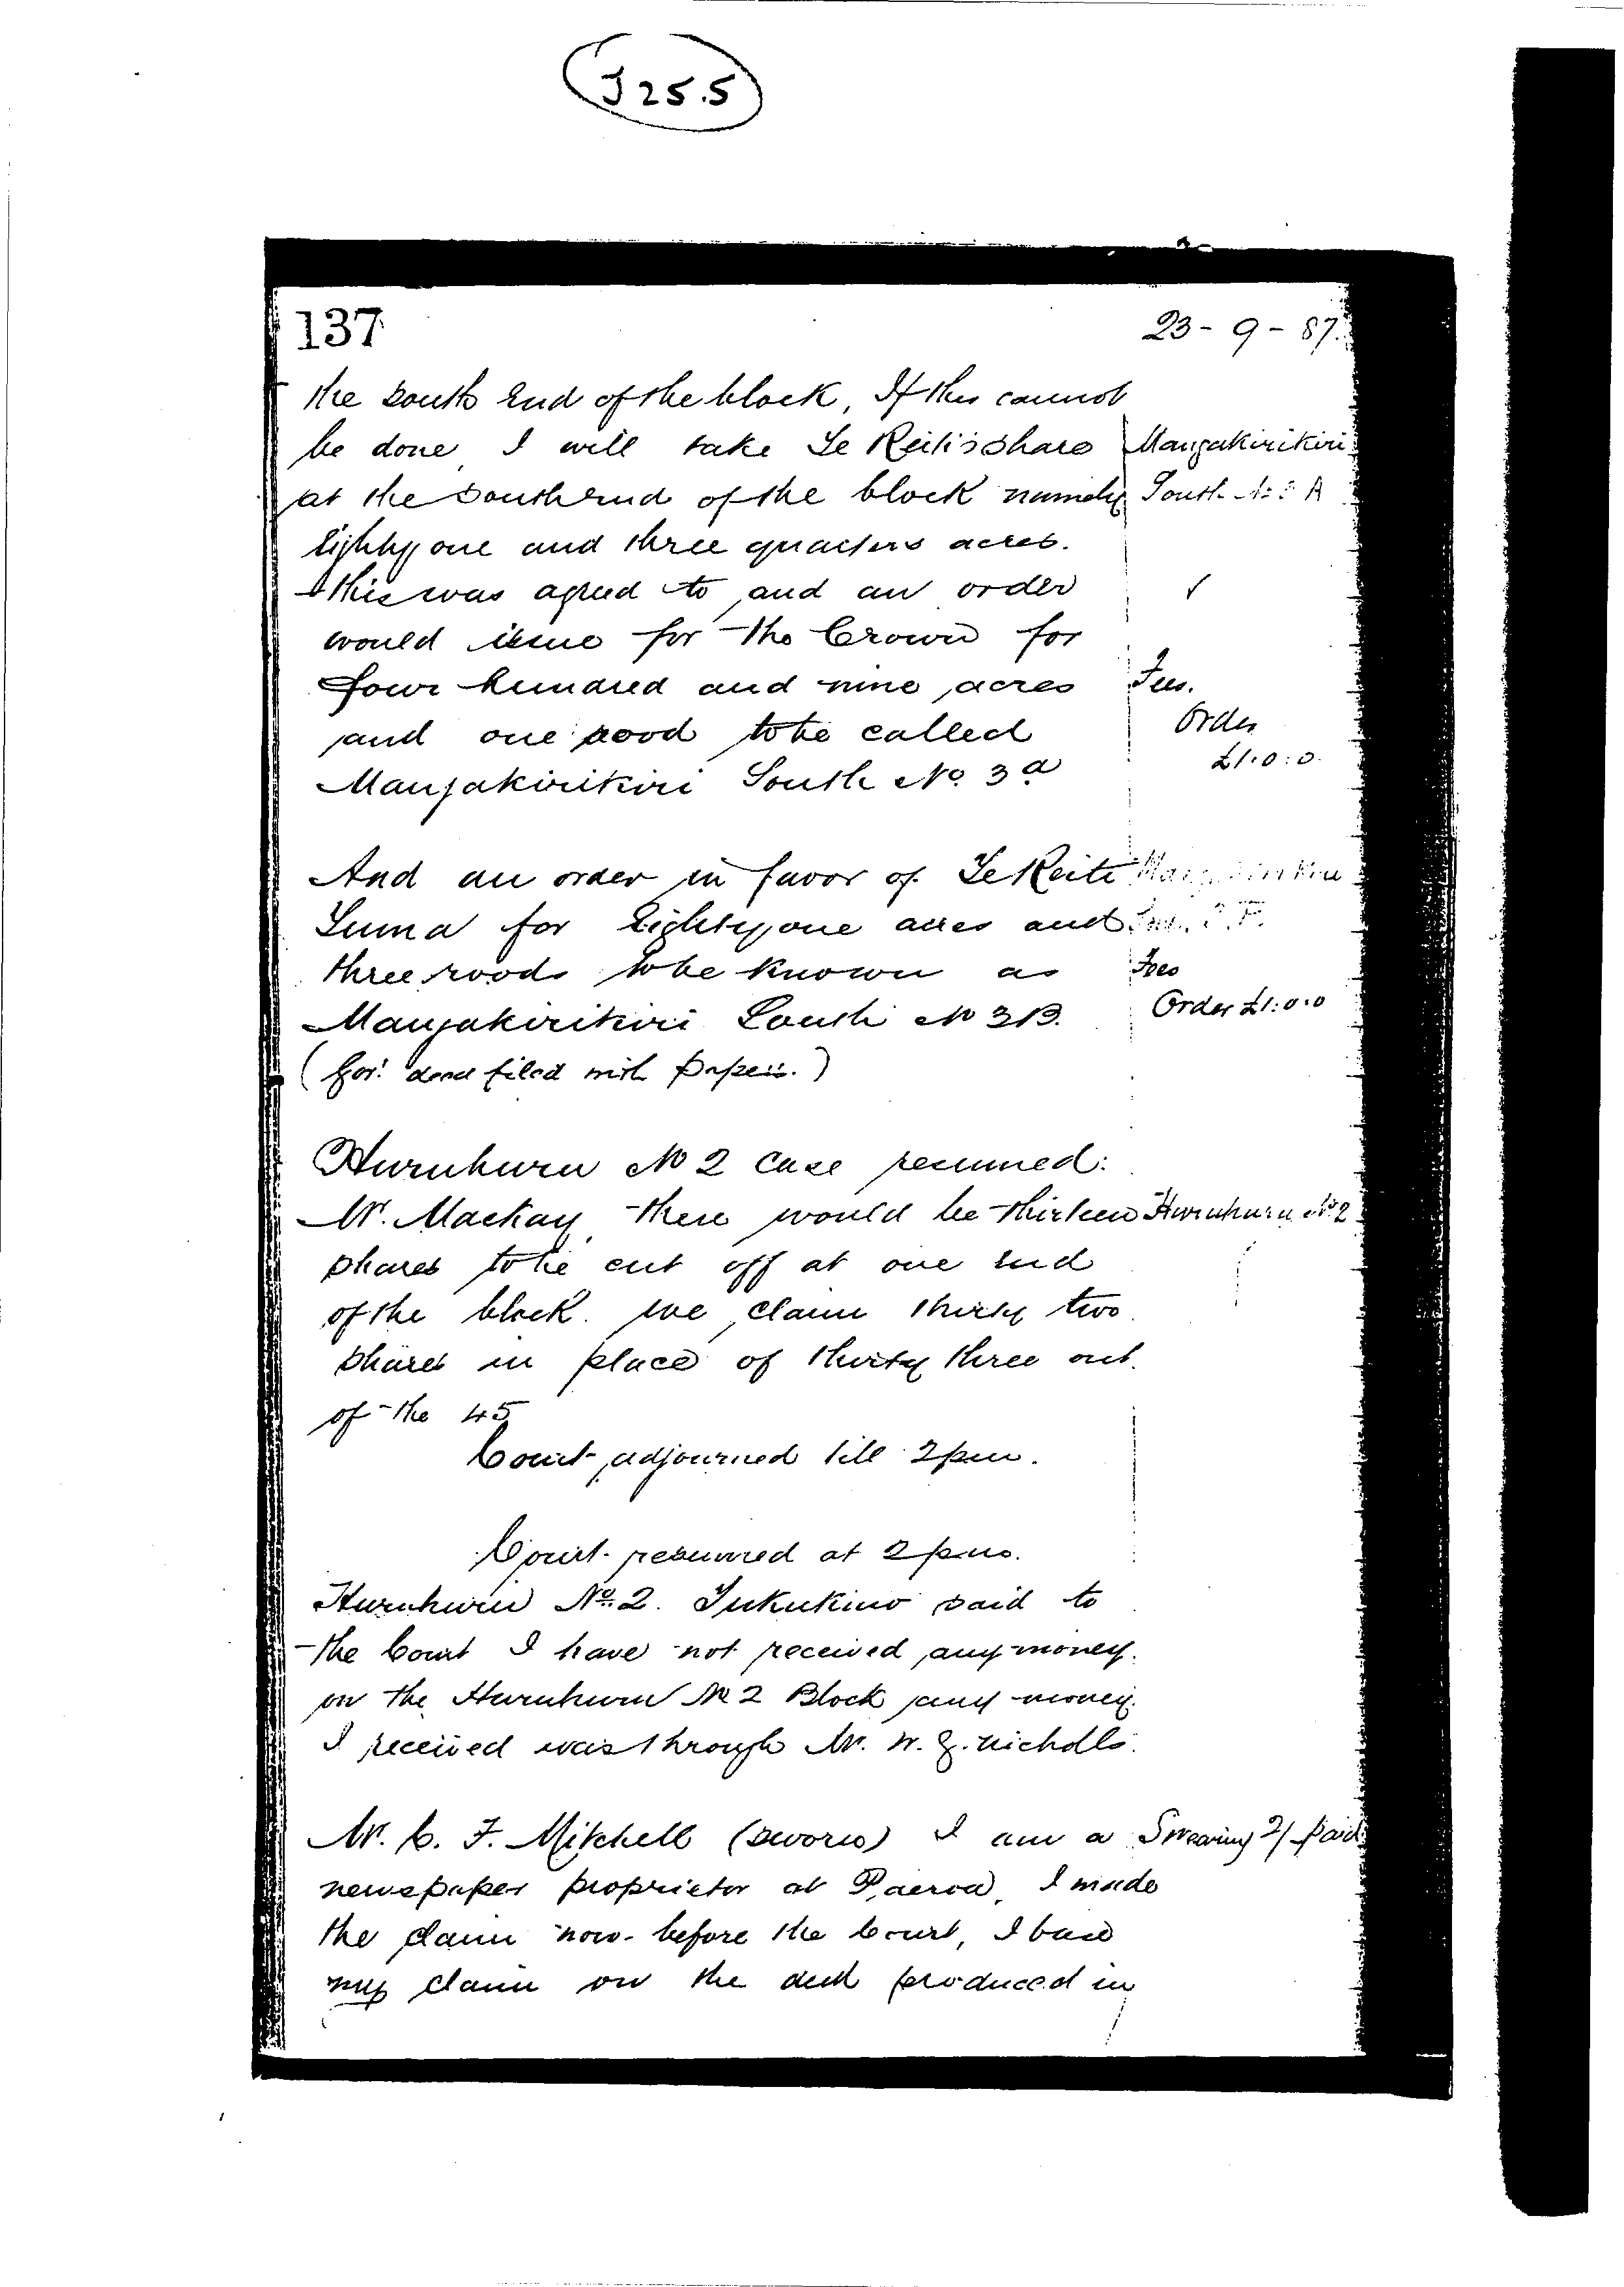 J 25.5
137
23 - 9 - 87.
the South End of the block, If this cannot
be done, I will take Te Reiti's Share Mangakirikiri
at the South end of the block namely South No 3 A
Eighty one and three quarters acres.
This was agreed to, and an order
would issue for the Crown for
four hundred and nine acres Fees.
and one rood to be called Order
£1:0:0.
Mangakirikiri South No. 3a
And an order in favor of Te Reiti
Tuma for Eighty one acres and
three roods to be known as Fees
Mangakirikiri South No 3B. Order £1:0:0
( deed filed with papers.)
Huruhuru No 2 Case resumed:
Mr. Mackay, there would be thirteen Huruhuru No 2
shares to be cut off at one end
of the block. we claim thirty two
shares in place of thirty three out
of the 45
Court adjourned till 2 pm.
Court resumed at 2 p.m.
Huruhuru No. 2. Tukukino said to
the Court I have not received any money.
on the Huruhuru No 2 Block any money.
I received was through Mr. W. Nicholls.
Mr. C. F. Mitchell (sworn) I am a Swearing 2/ paid
newspaper proprietor at Paeroa, I made
the claim now before the Court, I base
my claim on the deed produced in